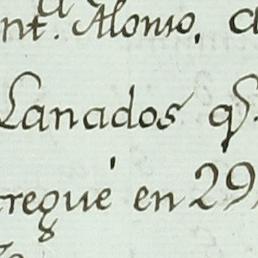 nt.ª Alonso, d
Lanados q.
tregué en 29